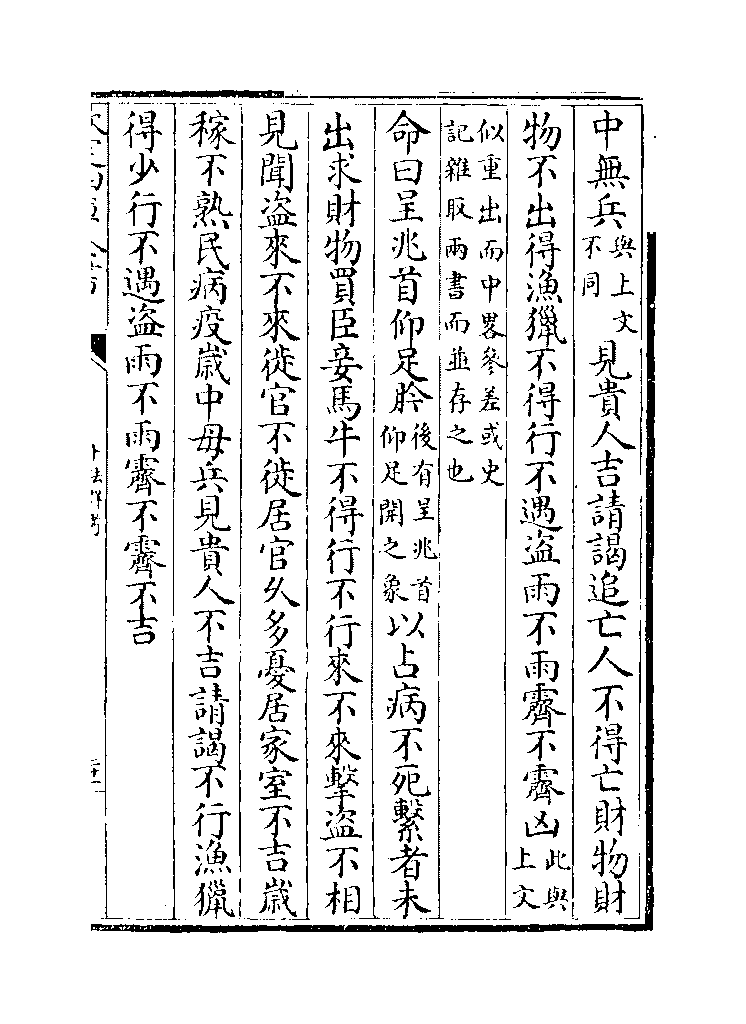 中無兵與上文不同見貴人吉請謁追亡人不得亡財物財
物不出得漁獵不得行不遇盗雨不雨霽不霽凶此與上文
似重出而中畧參差或史記雜取兩書而並存之也
命曰呈兆首仰足肣後有呈兆首仰足開之象以占病不死繫者未
出求財物買臣妾馬牛不得行不行來不來擊盗不相
見聞盗來不來徙官不徙居官久多憂居家室不吉歳
稼不熟民病疫歳中毋兵見貴人不吉請謁不行漁獵
得少行不遇盗雨不雨霽不霽不吉